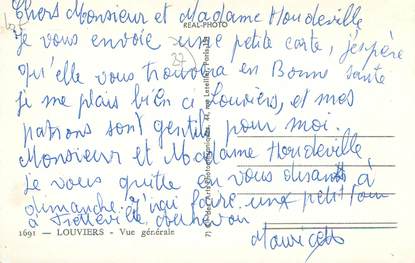 Chers Monsieur et Madame Houdeville
REAL-PHOTO
je vous envoie une petite carte, j'espère
qu'elle vous trouvera en Bonne santé
27
je me plais bien ci Louviers, et mes
patrons sont gentils pour moi.
Monsieur et Madame Houdeville,
je vous quitte en vous disant à
dimanche. j'irai faire une petit tour
à
1691 — LOUVIERS - Vue générale